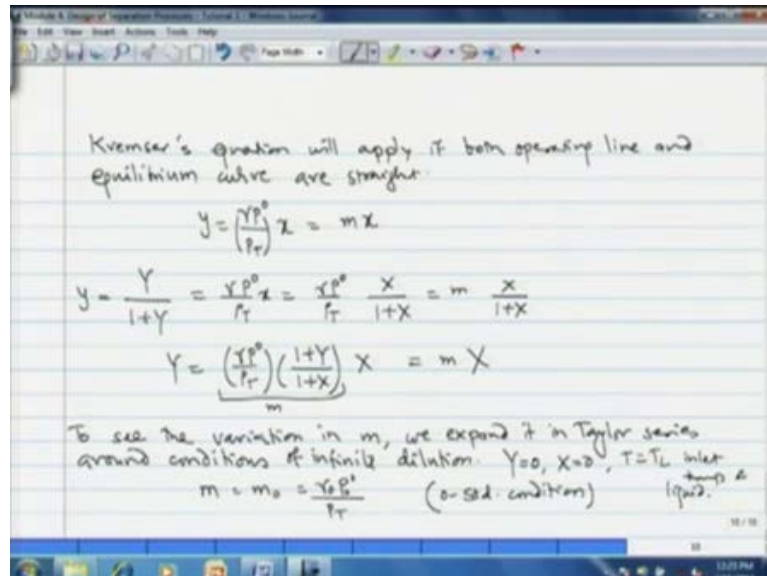 Module 4 Design of Separation Processes - Tutorial 1 - Windows Journal
File Edit View Insert Actions Tools Help
Page Width
Kremser's equation will apply if both operating line and
equilibrium curve are straight.
y = (γP⁰/P_T) x = mx
y = Y/(1+Y) = γP⁰/P_T x = γP⁰/P_T X/(1+X) = m X/(1+X)
Y = (γP⁰/P_T)((1+Y)/(1+X)) X = m X
m
To see the variation in m, we expand it in Taylor series
around conditions of infinite dilution. Y=0, X=0, T=T_L inlet
temp
m = m₀ = γ₀P₀⁰/P_T (0-std. condition) liquid.
10/10
10
12:25 PM